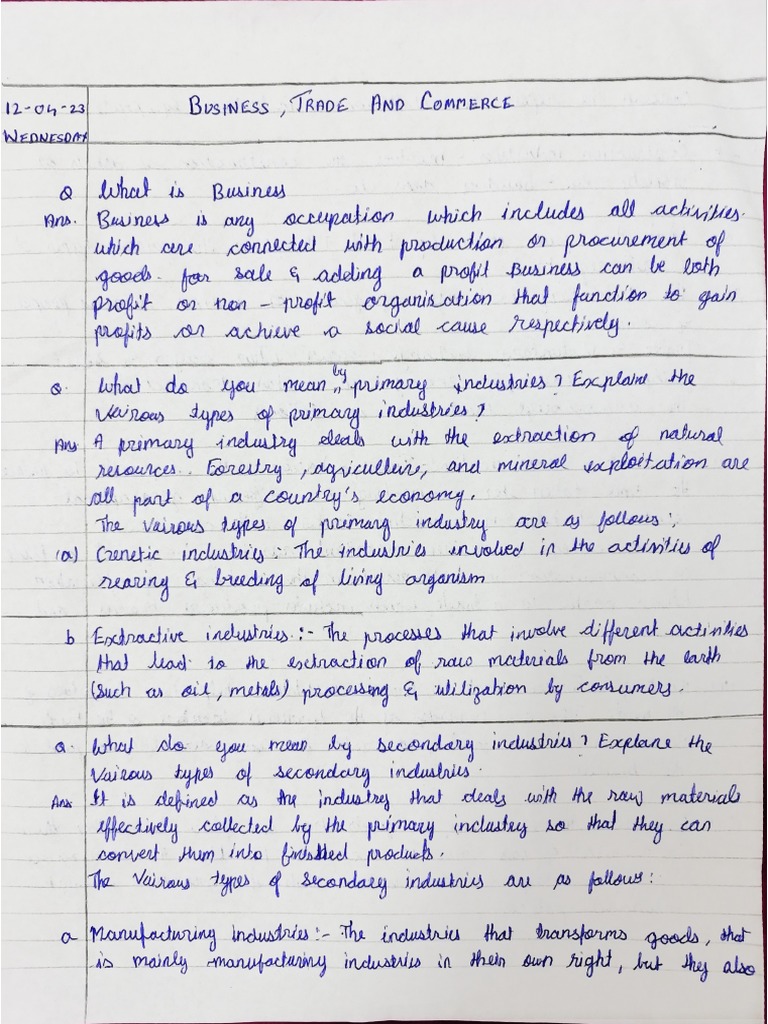 12-04-23 BUSINESS, TRADE AND COMMERCE
WEDNESDAY
Q What is Business
Ans. Business is any occupation which includes all activities.
which are connected with production or procurement of
goods. for sale & adding a profit Business can be both
profit or non - profit organisation that function to gain
profits or achieve a social cause respectively.
Q. What do you mean by primary industries? Explane the
Vairous types of primary industries?
Ans A primary industry deals with the extraction of natural
resources. Forestry, agriculture, and mineral exploitation are
all part of a country's economy.
The Vairous types of primary industry are as follows:
(a) Genetic industries:- The industries involved in the activities of
rearing & breeding of living organism
b Extractive industries:- The processes that involve different activities
that lead to the extraction of raw materials from the earth
(such as oil, metals) processing & utilization by consumers.
Q. What do you mean by secondary industries? Explane the
Vairous types of secondary industries.
Ans It is defined as the industry that deals with the raw materials
effectively collected by the primary industry so that they can
convert them into finished products.
The Vairous types of secondary industries are as follows:
a Manufacturing industries:- The industries that transforms goods, that
is mainly manufacturing industries in their own right, but they also